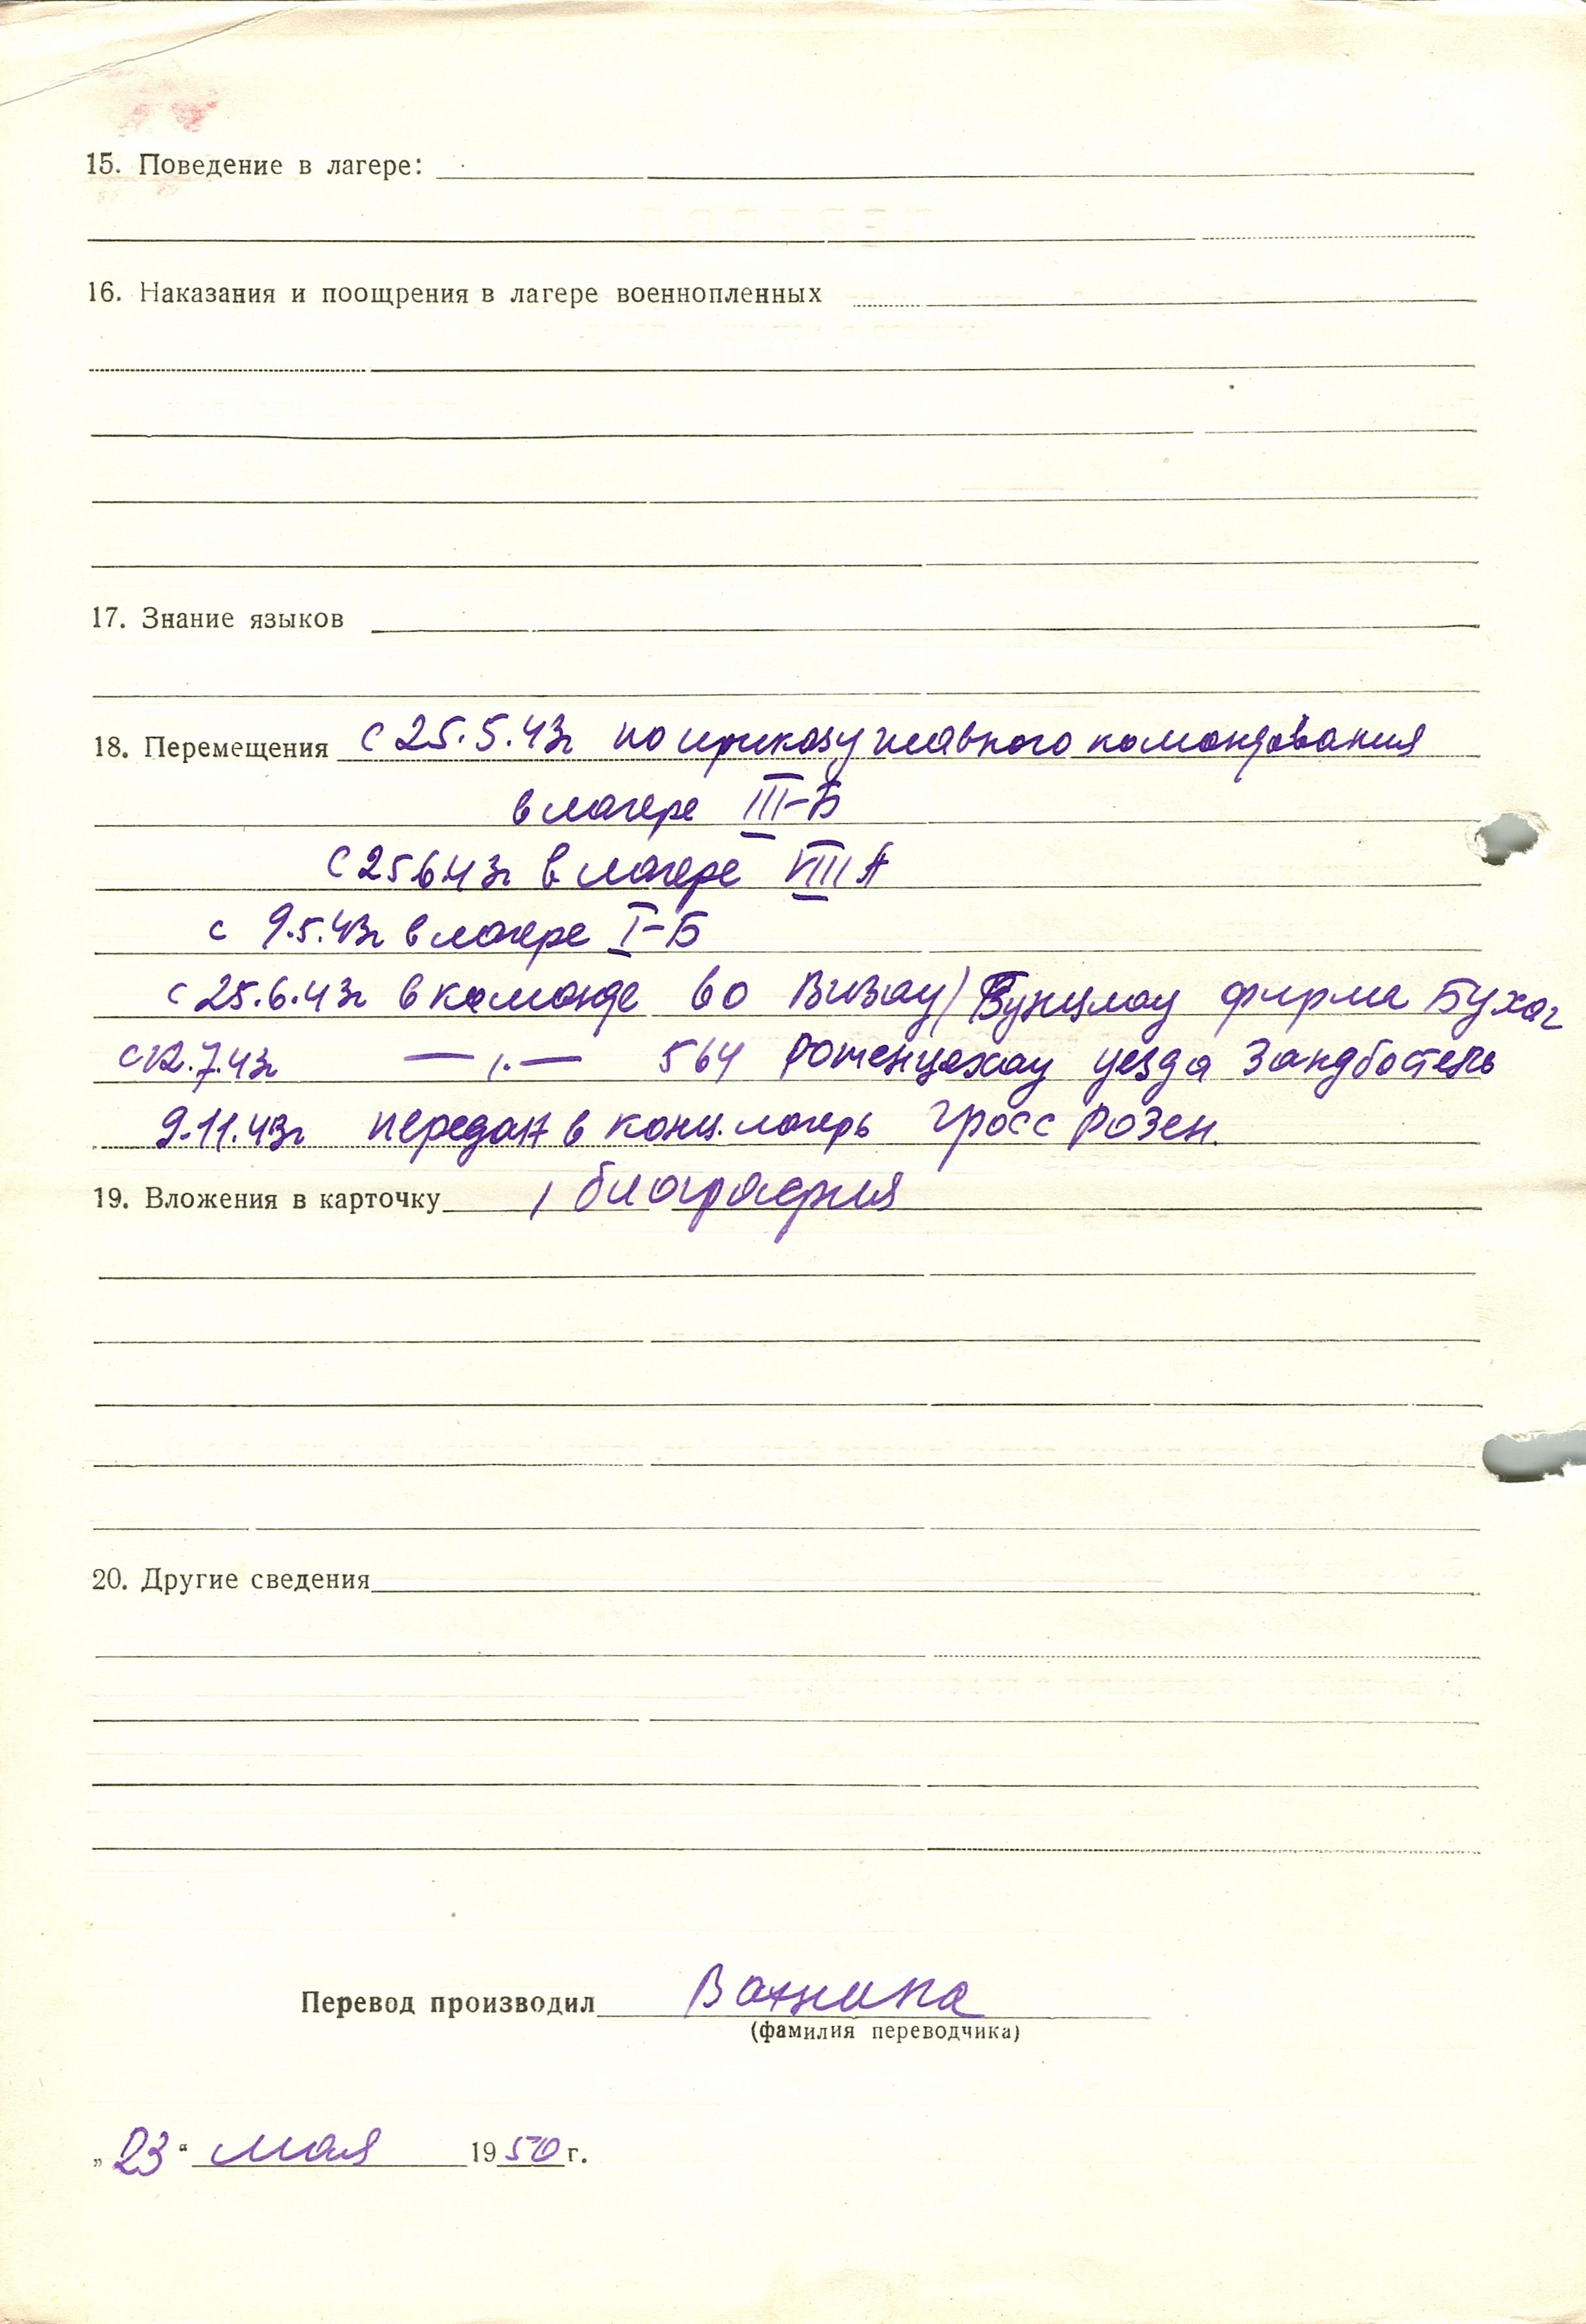 15. Поведение в лагере:
16. Наказания и поощрения в лагере военнопленных
17. Знание языков
18. Перемещения с 25.5.43г по приказу главного командования
в лагере III-Б
С 25 6 43г в лагере VIII А
с 9.5.43г в лагере I-Б
с 25.6.43г в команде во Визау/Бунцлау фирма Бухаг
с 12.7.43г —〃— 564 уезда Зандбостель
9.11.43г передан в конц. лагерь Гросс Розен.
19. Вложения в карточку 1 биография
20. Другие сведения
Перевод производил
(фамилия переводчика)
„23“ мая 1950 г.